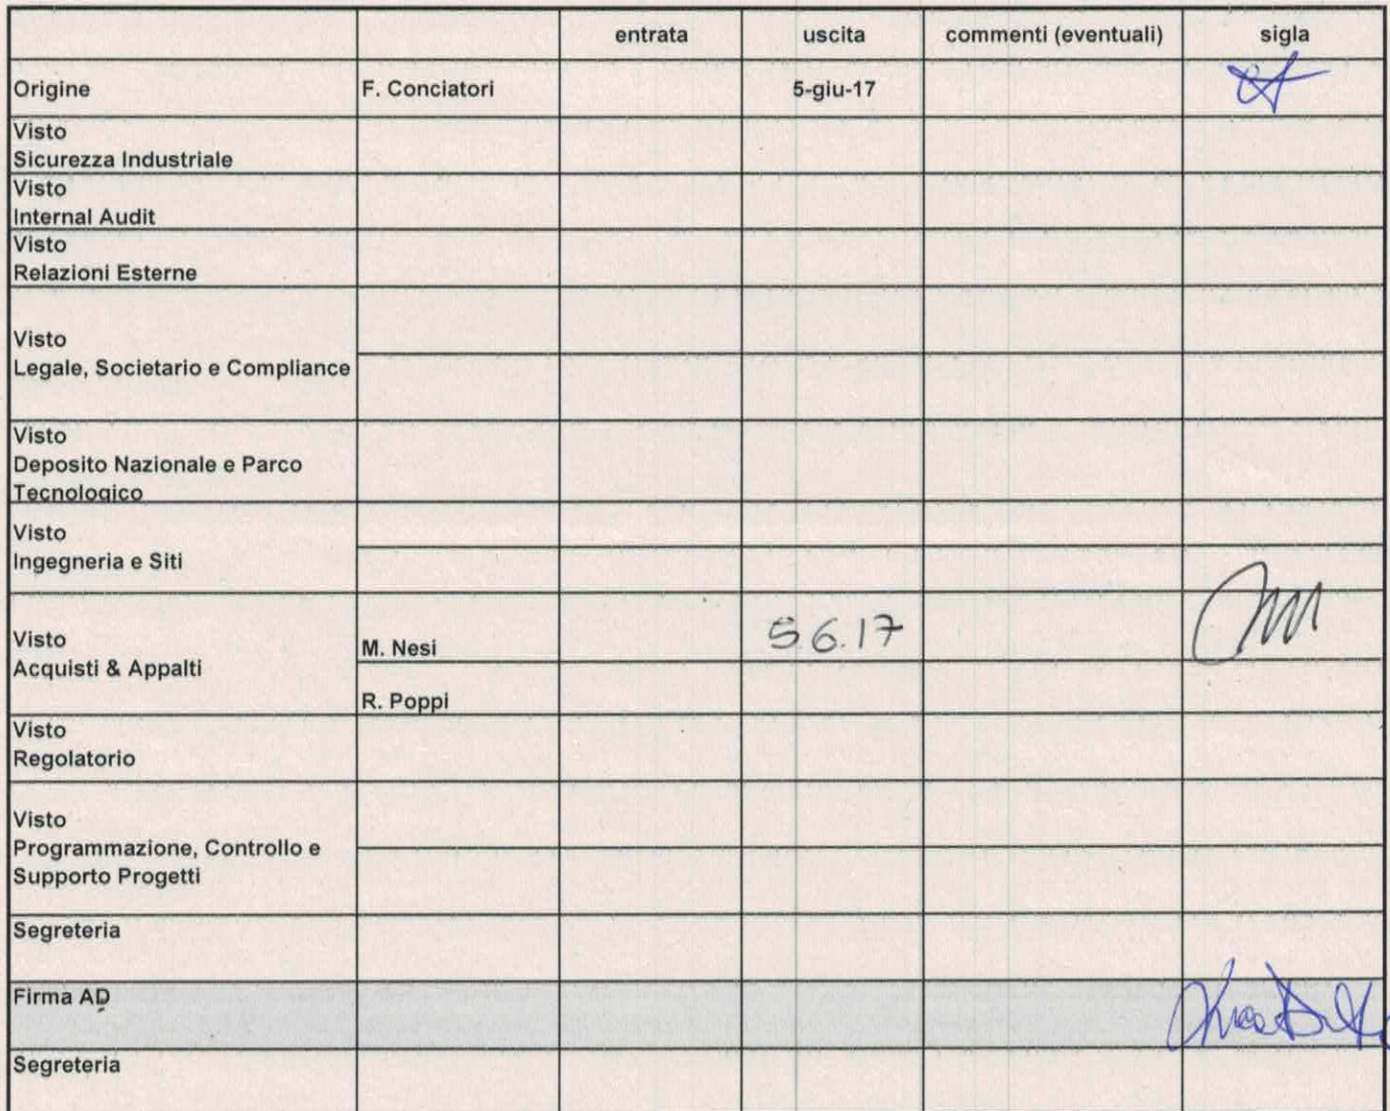 entrata uscita commenti (eventuali) sigla
Origine F. Conciatori 5-giu-17
Visto
Sicurezza Industriale
Visto
Internal Audit
Visto
Relazioni Esterne
Visto
Legale, Societario e Compliance
Visto
Deposito Nazionale e Parco
Tecnologico
Visto
Ingegneria e Siti
Visto
Acquisti & Appalti
M. Nesi 5.6.17
R. Poppi
Visto
Regolatorio
Visto
Programmazione, Controllo e
Supporto Progetti
Segreteria
Firma AD
Segreteria